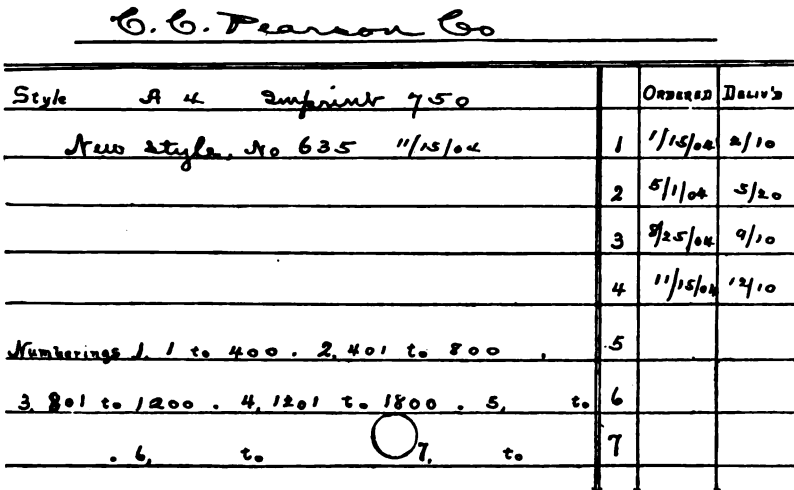 C. C. Pearson Co
Style A 4 Imprint 750 ORDERED DELIV'D
New style, No 635 11/15/04 1 1/15/04 2/10
2 5/1/04 5/20
3 8/25/04 9/10
4 11/15/04 12/10
Numberings 1, 1 to 400 . 2, 401 to 800 , 5
3, 801 to 1200 . 4, 1201 to 1800 . 5, to 6
. 6, to 7, to 7